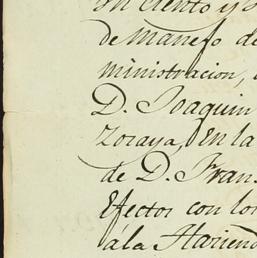 un ciento y
de manejo de
ministracion,
D. Joaquin
Zoraya, En la
de D. Fran
Efectos con los
ála Haciend